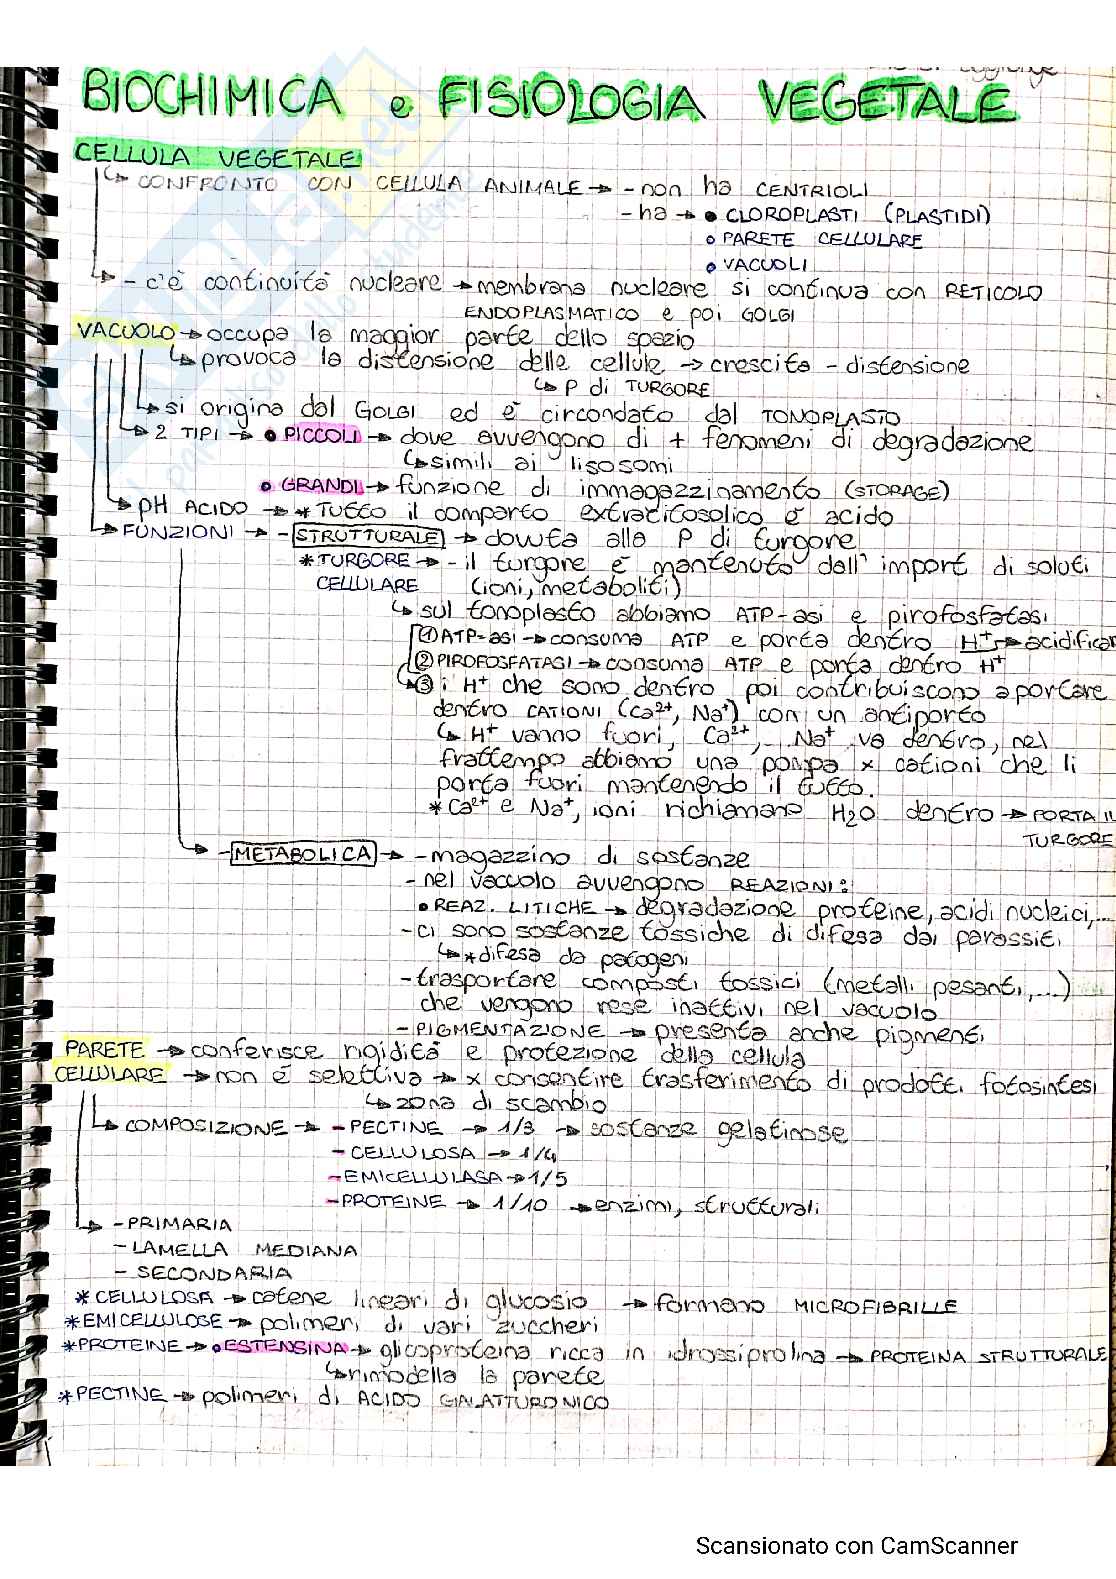 aggiunge
BIOCHIMICA e FISIOLOGIA VEGETALE
CELLULA VEGETALE
↳ CONFRONTO CON CELLULA ANIMALE → - non ha CENTRIOLI
- ha → • CLOROPLASTI (PLASTIDI)
• PARETE CELLULARE
• VACUOLI
↳ - c'è continuità nucleare → membrana nucleare si continua con RETICOLO
ENDOPLASMATICO e poi GOLGI
VACUOLO → occupa la maggior parte dello spazio
↳ provoca la distensione delle cellule → crescita - distensione
↳ P di TURGORE
↳ si origina dal GOLGI ed è circondato dal TONOPLASTO
↳ 2 TIPI → • PICCOLI → dove avvengono di + fenomeni di degradazione
↳ simili ai lisosomi
• GRANDI → funzione di immagazzinamento (STORAGE)
↳ pH ACIDO → * TUTTO il comparto extracitosolico è acido
↳ FUNZIONI → - STRUTTURALE → dovuta alla P di turgore
* TURGORE → - il turgore è mantenuto dall' import di soluti
CELLULARE (ioni, metaboliti)
↳ sul tonoplasto abbiamo ATP-asi e pirofosfatasi
① ATP-asi → consuma ATP e porta dentro H⁺ → acidificar
② PIROFOSFATASI → consuma ATP e porta dentro H⁺
↳ ③ i H⁺ che sono dentro poi contribuiscono a portare
dentro CATIONI (Ca²⁺, Na⁺) con un antiporto
↳ H⁺ vanno fuori, Ca²⁺, Na⁺ va dentro, nel
frattempo abbiamo una pompa x cationi che li
porta fuori mantenendo il tutto.
* Ca²⁺ e Na⁺, ioni richiamano H2O dentro → PORTA IL
TURGORE
↳ - METABOLICA → - magazzino di sostanze
- nel vacuolo avvengono REAZIONI:
• REAZ. LITICHE → degradazione proteine, acidi nucleici,...
- ci sono sostanze tossiche di difesa dai parassiti
↳ * difesa da patogeni
- trasportare composti tossici (metalli pesanti,...)
che vengono rese inattivi nel vacuolo
- PIGMENTAZIONE → presenta anche pigmenti
PARETE → conferisce rigidità e protezione della cellula
CELLULARE → non è selettiva → x consentire trasferimento di prodotti fotosintesi
↳ zona di scambio
↳ COMPOSIZIONE → - PECTINE → 1/3 → sostanze gelatinose
- CELLULOSA → 1/4
- EMICELLULASA → 1/5
- PROTEINE → 1/10 → enzimi, strutturali
↳ - PRIMARIA
- LAMELLA MEDIANA
- SECONDARIA
* CELLULOSA → catene lineari di glucosio → formano MICROFIBRILLE
* EMICELLULOSE → polimeri di vari zuccheri
* PROTEINE → • ESTENSINA → glicoproteina ricca in idrossiprolina → PROTEINA STRUTTURALE
↳ rimodella la parete
* PECTINE → polimeri di ACIDO GALATTURONICO
Scansionato con CamScanner